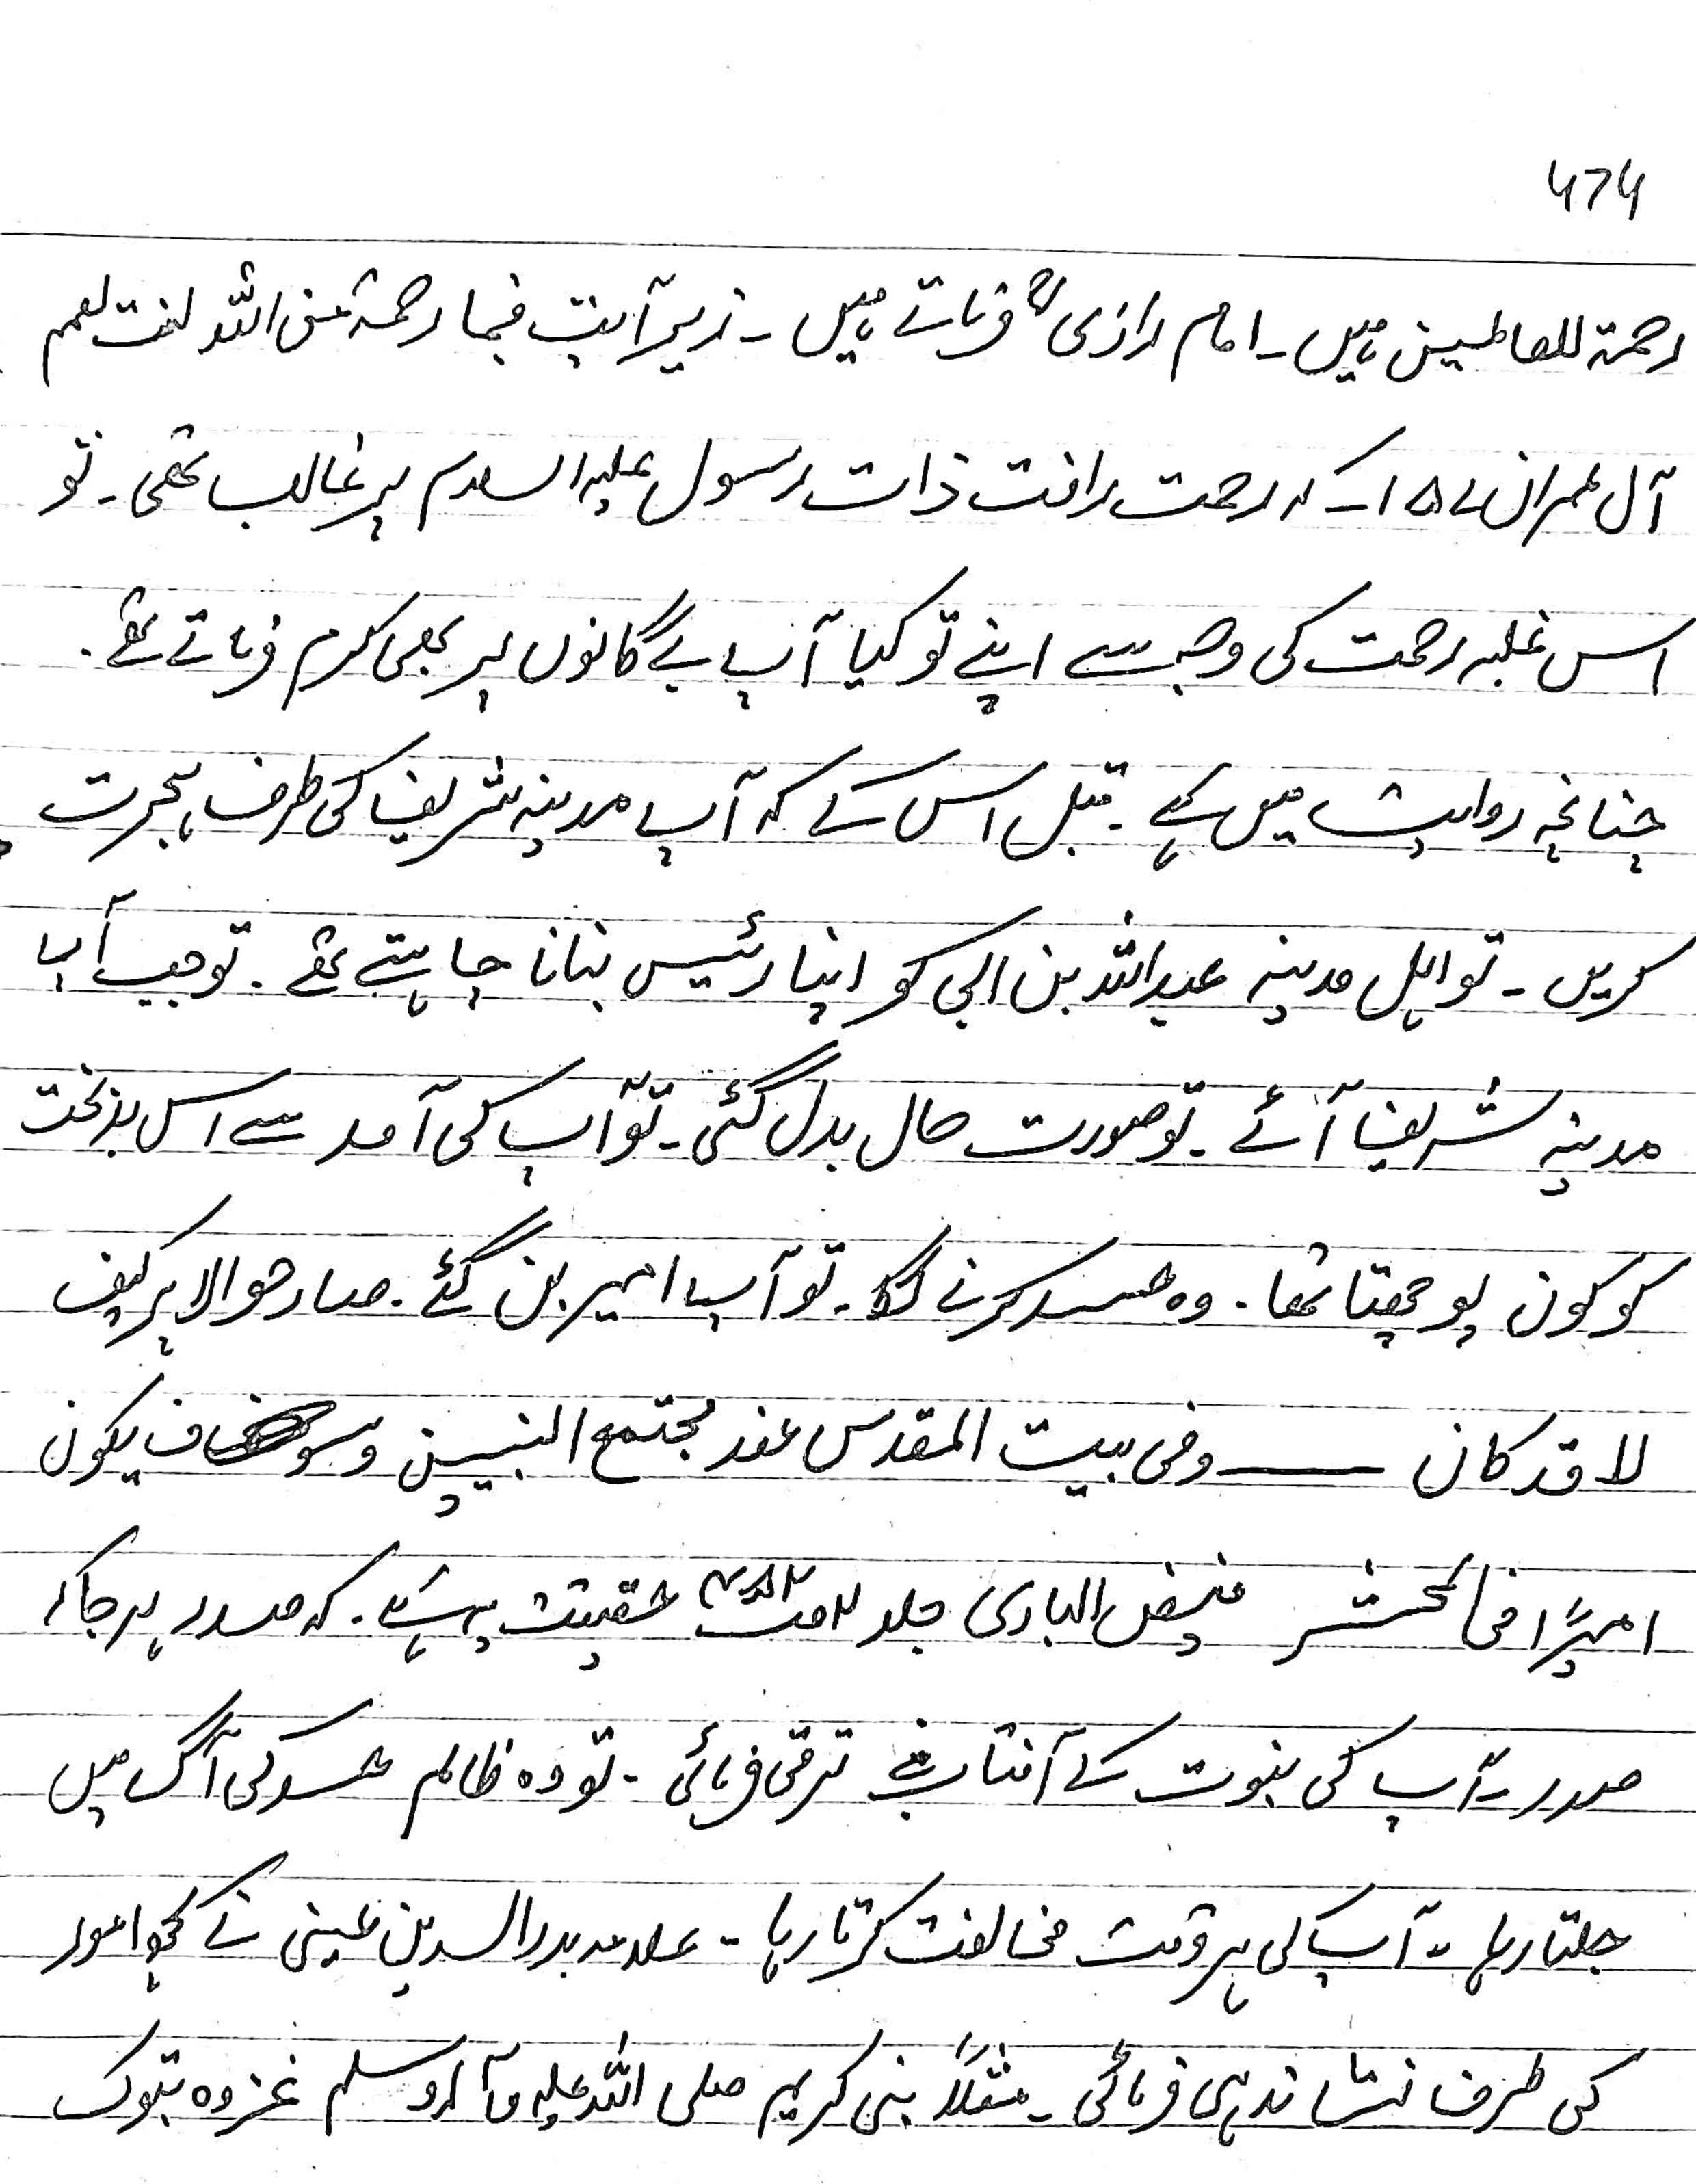 474
رحمۃ للعالمین ہیں۔ امام رازی رح فرماتے ہیں۔ زیر آیت فبما رحمۃ من اللہ لنت لھم
آل عمران ۱۵۹۔ کہ رحمت رافت ذات رسول علیہ السلام پر غالب تھی۔ تو
اس غلبہ رحمت کی وجہ سے اپنے تو کیا آپ بے گانوں پر بھی کرم فرماتے تھے۔
چنانچہ روایت میں ہے۔ قبل اس کے کہ آپ مدینہ شریف کی طرف ہجرت
کریں۔ تو اہل مدینہ عبداللہ بن ابی کو اپنا رئیس بنانا چاہتے تھے۔ تو جب آپ
مدینہ شریف آئے۔ تو صورت حال بدل گئی۔ تو آپ کی آمد سے اس بدبخت
کو کون پوچھتا تھا۔ وہ حسد کرنے لگا۔ تو آپ امیر بن گئے۔ صار حوالا پر کیف
لا قد کان ــــ وفی بیت المقدس عند مجتمع النبیین وسوف یکون
امیرًا فی المحشر فیض الباری جلد ۲ حقیقت یہ ہے۔ کہ صدر ہر جا کہ
صدر۔ آپ کی نبوت کے آفتاب نے ترقی فرمائی۔ تو وہ ظالم حسد کی آگ میں
جلتا رہا۔ آپ کی ہر وقت مخالفت کرتا رہا۔ علامہ بدرالدین عینی نے کچھ امور
کی طرف نشاندہی فرمائی۔ مثلاً نبی کریم صلی اللہ علیہ وآلہ وسلم غزوہ تبوک